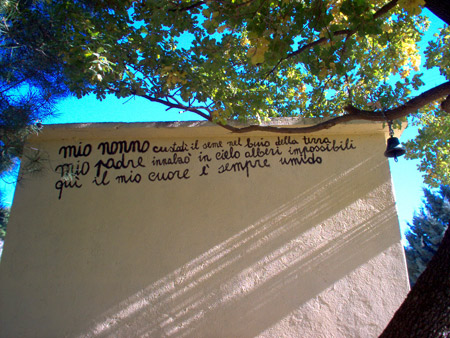 mio nonno custodì il seme nel buio della terra
mio padre innalzò in cielo alberi impossibili
qui il mio cuore è sempre umido